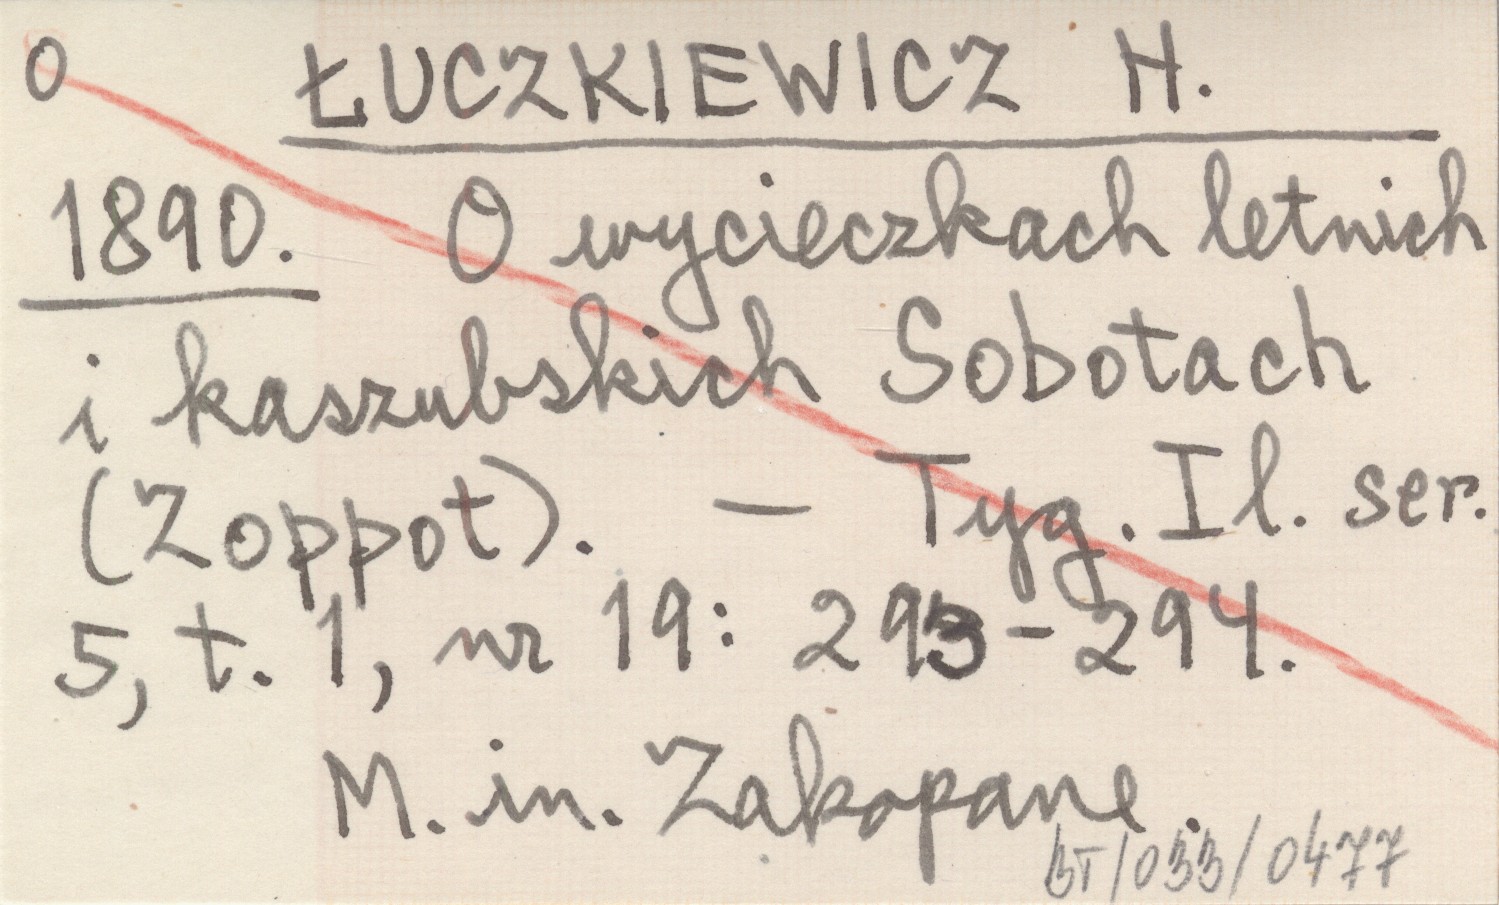 O ŁUCZKIEWICZ H.
1890. O wycieczkach letnich
i kaszubskich Sobotach
(Zoppot). – Tyg. Il. ser.
5, t. 1, nr 19: 293-294.
M. in. Zakopane.
BT/033/0477